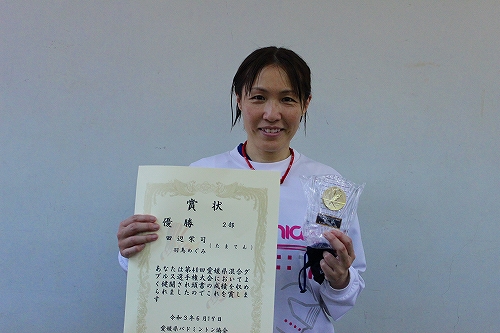 賞状
優勝 2部
田辺栄司
(たまてん)
羽鳥めぐみ
あなたは 愛媛県混合ダ
ブルス選手権大会においてよ
く健闘され頭書の成績を収め
られましたのでこれを賞しま
す
令和3年6月19日
愛媛県バドミントン協会